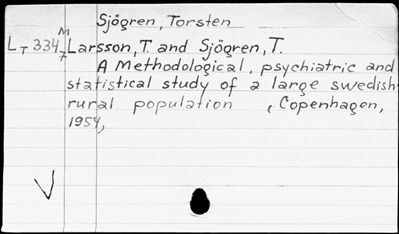 Sjögren, Torsten
M
LT 334 Larsson, T. and Sjögren, T.
7
A Methodological, psychiatric and
statistical study of a large swedish
rural population , Copenhagen,
1954,